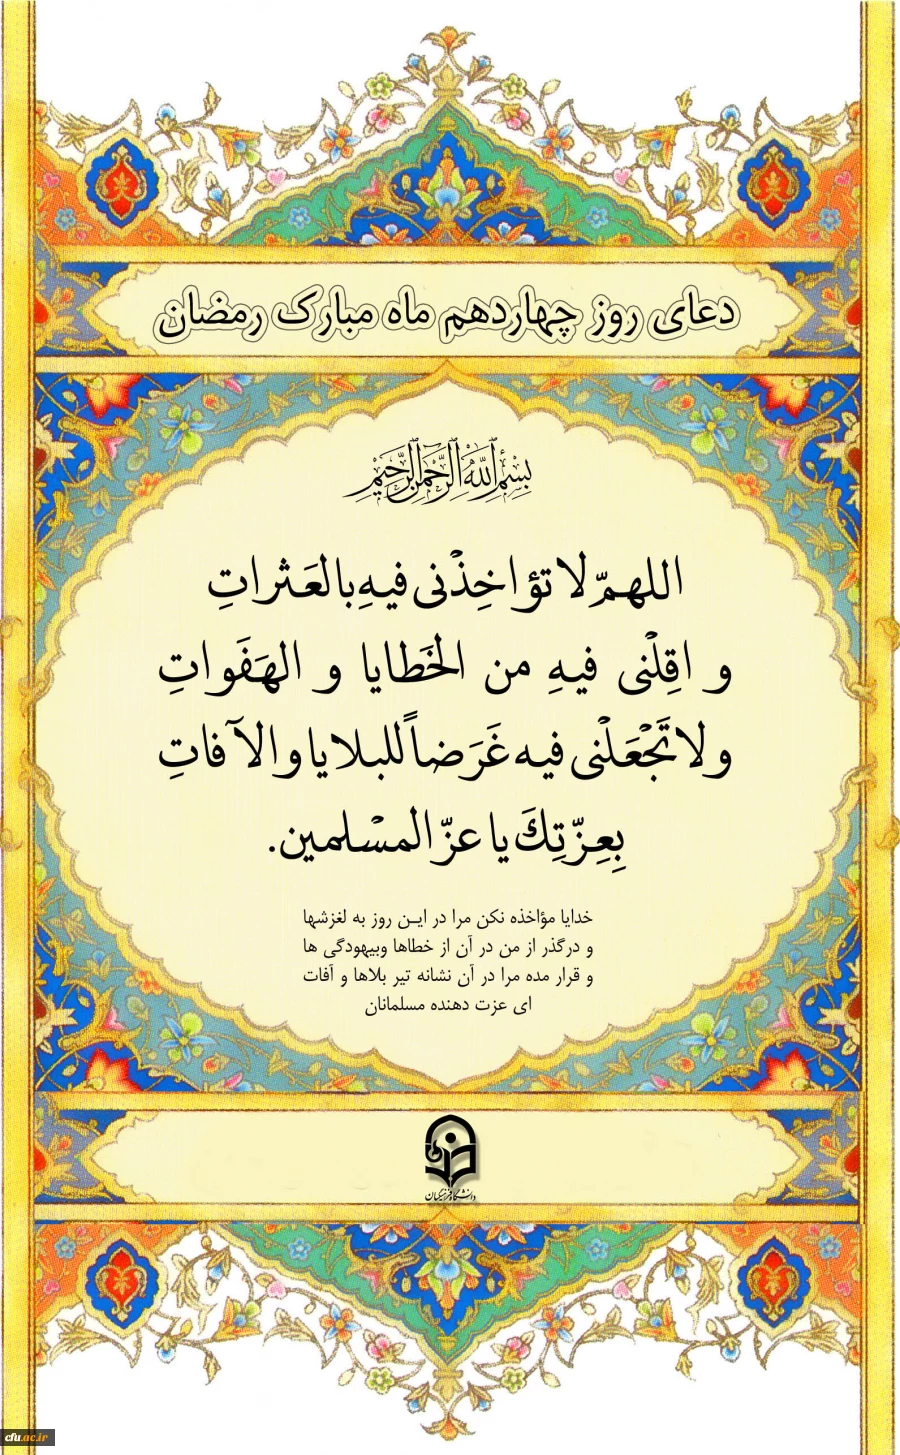 دعای روز چهاردهم ماه مبارک رمضان
بِسْمِ اللَّهِ الرَّحْمَنِ الرَّحِيمِ
اللهمّ لا تؤاخِذْنی فیهِ بالعَثراتِ
و اقِلْنی فیهِ من الخَطایا و الهَفَواتِ
ولا تَجْعَلْنی فیه غَرَضاً للبلایا والآفاتِ
بِعِزّتِكَ یا عزّ المسْلمین.
خدایا مؤاخذه نکن مرا در ایـن روز به لغزشها
و درگذر از من در آن از خطاها وبیهودگی ها
و قرار مده مرا در آن نشانه تیر بلاها و آفات
ای عزت دهنده مسلمانان
دانشگاه فرهنگیان
cfu.ac.ir